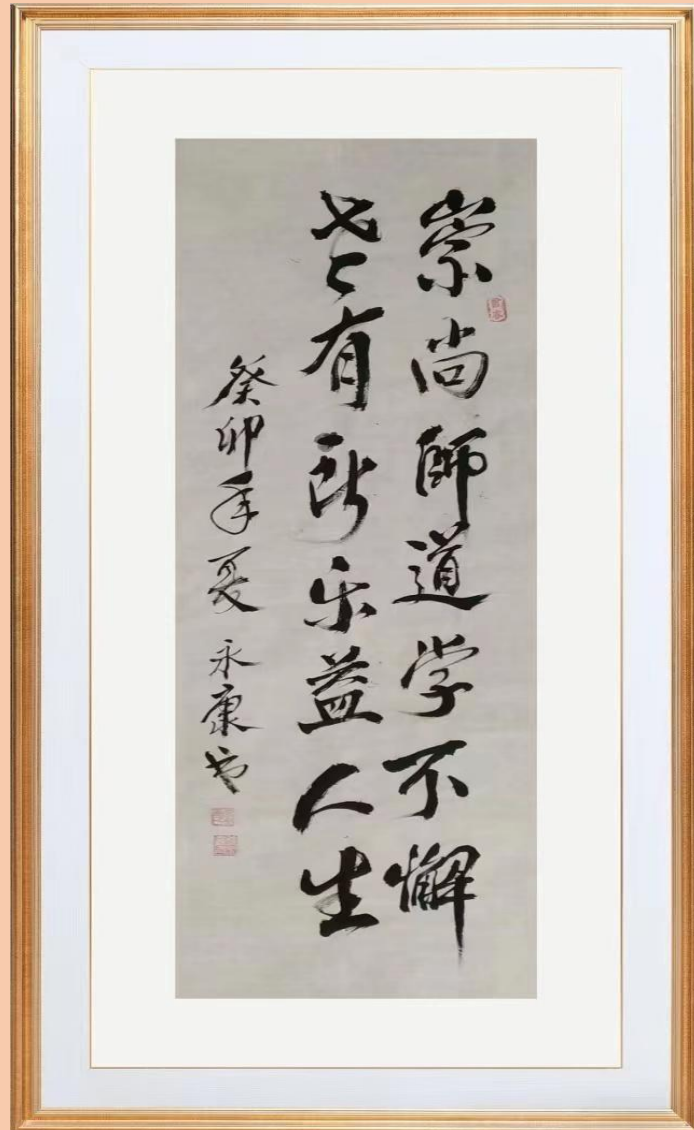 崇尚師道学不懈
老有所乐益人生
癸卯年夏 永康书